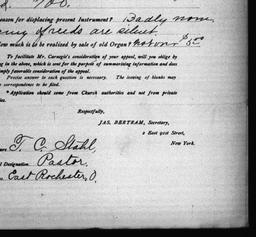 700.
eason for displacing present Instrument? Badly worn,
many of reeds are silent.
How much is to be realized by sale of old Organ? not over $5.00
To facilitate Mr. Carnegie's consideration of your appeal, will you oblige by
ng in the above, which is sent for the purpose of summarizing information and does
mply favorable consideration of the appeal.
Precise answer to each question is necessary. The issuing of blanks may
correspondence to be filed.
*Application should come from Church authorities and not from private
Respectfully,
JAS. BERTRAM, Secretary,
2 East 91st Street,
New York.
T. C. Stahl
Designation. Pastor.
East Rochester, O.